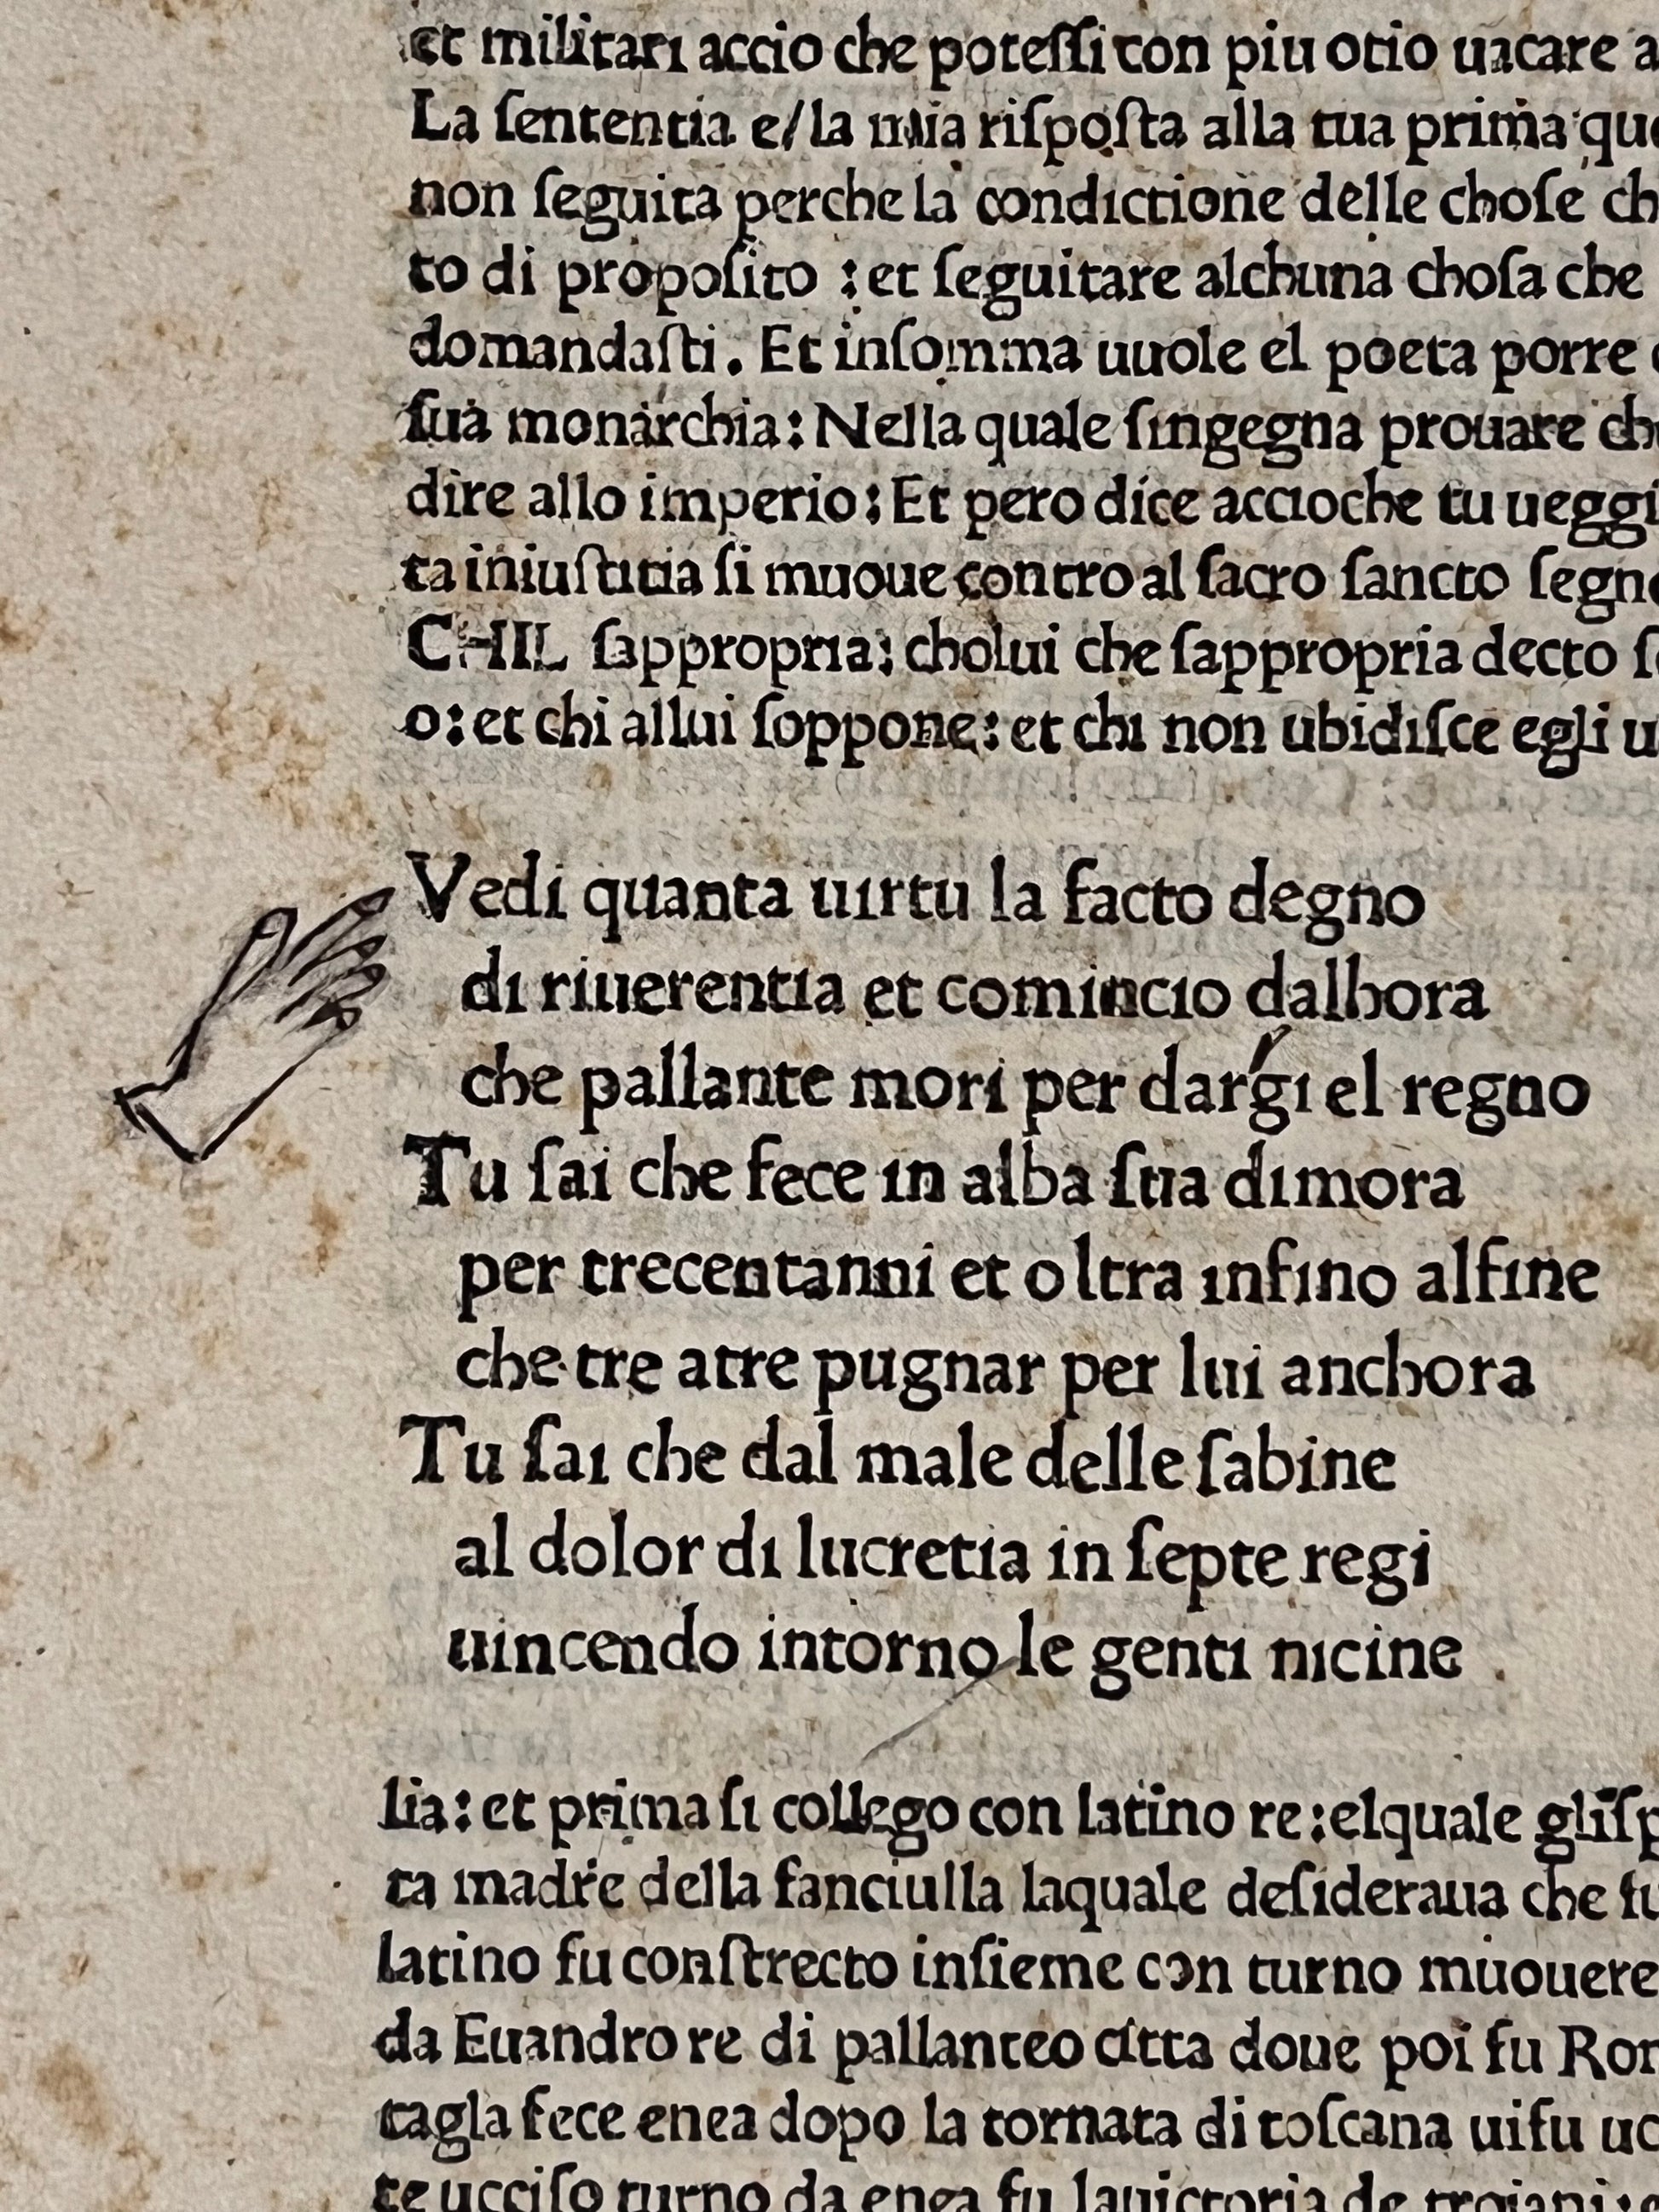 et militari accio che poteſſi con piu otio uacare a
La ſententia e/la mia riſpoſta alla tua prima que
non ſeguita perche la condictione delle choſe ch
to di propoſito : et ſeguitare alchuna choſa che
domandaſti. Et inſomma uuole el poeta porre
ſua monarchia: Nella quale ſingegna prouare che
dire allo imperio: Et pero dice accioche tu ueggi
ta iniuſtitia ſi muoue contro al ſacro ſancto ſegno
CHIL ſappropria: cholui che ſappropria decto ſe
o: et chi allui ſoppone: et chi non ubidiſce egli u
Vedi quanta uirtu la facto degno
di riuerentia et comincio dalhora
che pallante mori per dargi el regno
Tu ſai che fece in alba ſua dimora
per trecentanni et oltra infino alfine
che tre atre pugnar per lui anchora
Tu ſai che dal male delle ſabine
al dolor di lucretia in ſepte regi
uincendo intorno le genti nicine
lia: et prima ſi collego con latino re: elquale gliſp
ta madre della fanciulla laquale deſideraua che fu
latino fu conſtrecto inſieme con turno muouere
da Euandro re di pallanteo citta doue poi fu Rom
tagla fece enea dopo la tornata di toſcana uifu uc
te ucciſo turno da enea fu lauictoria de troiani: